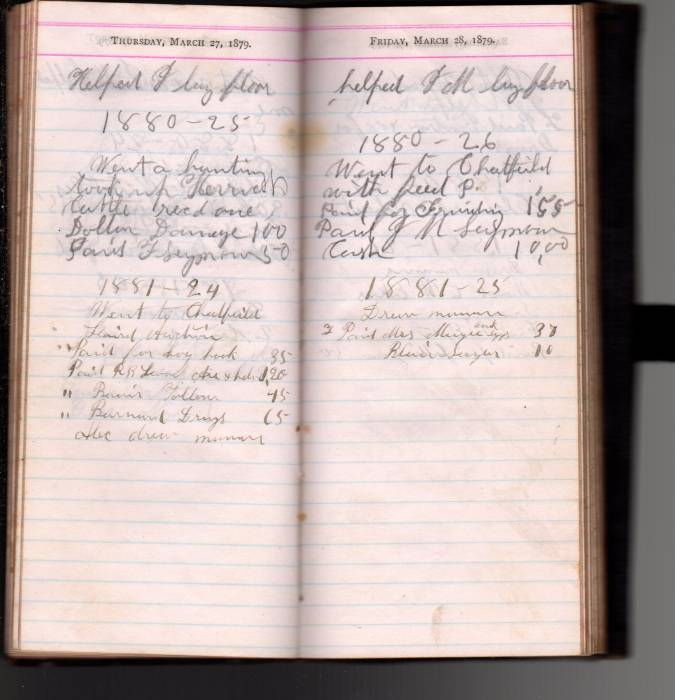 Thursday, March 27, 1879.
Helped F lay floor
1880-25
Went a hunting
took up
Cattle one
Dollar Damage 100
Paid F Seymour 50
1881-24
Went to Chatfield
Auction
" Paid for hook 35
Paid R R Axe & 1,20
" Tallow 45
" Barnard Drugs 65
Alec drew manure
Friday, March 28, 1879.
helped F M lay floor
1880-26
Went to Chatfield
with feed P.
Paid for Grinding 155
Paid F M Seymour
Cash 10,00
1881-25
Drew manure
Paid Mrs 37
10